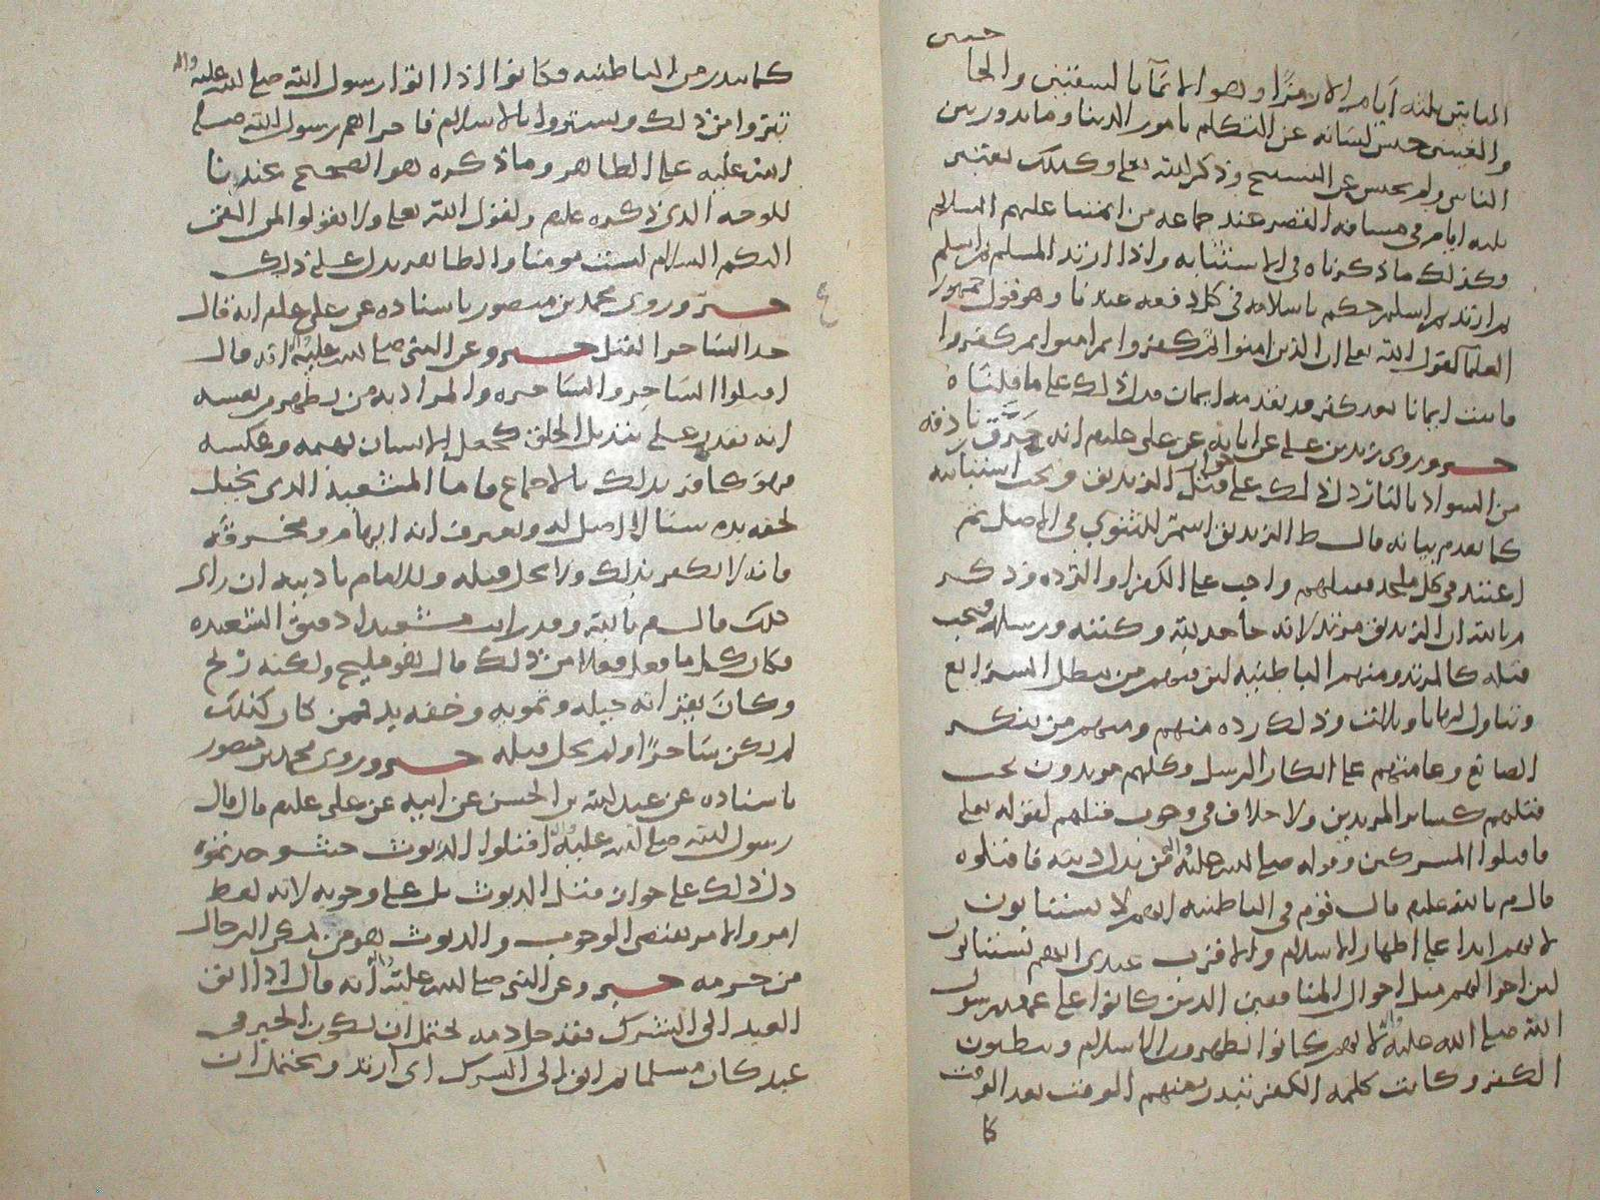 حبس
ايام الا رمزا وهو الايماء بالشفتين والحا
والعينين حبس لسانه عن التكلم بامور الدنيا وما يدور بين
الناس ولم يحبس عن التسبيح وذكر الله تعلى وكذلك يعتبر
ثلثه ايام في مسافه القصر عند جماعه من ائمتنا عليهم السلام
وكذلك ما ذكرناه في الاستتابه واذا ارتد المسلم ثم اسلم
ثم ارتد ثم اسلم حكم باسلامه في كل دفعه عندنا وهو قول جمهور
العلما لقول الله تعلى ان الذين امنوا ثم كفروا ثم امنوا ثم كفروا
فاثبت ايمانا بعد كفر قد تقدمه ايمان فدل ذلك على ما قلناه
خبر وروى زيد بن علي عن ابايه عن علي عليلم انه حرق زنادقه
من السواد بالنار دل ذلك على قتل الزنديق ويجب استتابته
كما تقدم بيانه قال ط الزنديق اسم للثنوي في الاصل ثم
في كل ملحد فقتلهم واجب على الكفر او الرده وذكر
م بالله ان الزنديق مرتد لانه جاحد لله وكتبه ورسله فيجب
قتله كالمرتد ومنهم الباطنيه لان منهم من يبطل الشرايع
وذلك رده منهم ومنهم من ينكر
الصانع وعامتهم على انكار الرسل وكلهم مرتدون يجب
قتلهم كساير المرتدين ولا خلاف في وجوب قتلهم لقوله تعلى
فاقتلوا المشركين وقوله صلى الله عليه واله من بدل دينه فاقتلوه
قال م بالله عليلم قال قوم في الباطنيه انهم لا يستتابون
لانهم ابدا على اظهار الاسلام والاقرب عندي انهم يستتابون
لان احوالهم مثل احوال المنافقين الذين كانوا على عهد رسول
الله صلى الله عليه واله لانهم كانوا يظهرون الاسلام ويبطنون
الكفر وكانت كلمه الكفر تبدر منهم الوقت بعد الوقت
كا
كما يبدر من الباطنيه وكانوا اذا اتوا رسول الله صلى الله عليه واله
تبروا من ذلك وتستروا بالاسلام فاجراهم رسول الله صلى
الله عليه على الظاهر وما ذكره هو الصحيح عندنا
للوجه الذي ذكره عليلم ولقول الله تعلى ولا تقولوا لمن القى
اليكم السلام لست مومنا والظاهر يدل على ذلك
خبر وروى محمد بن منصور باسناده عن علي عليلم انه قال
حد الساحر القتل خبر وعن النبي صلى الله عليه واله انه قال
اقتلوا الساحر والساحره والمراد به من يظهر من نفسه
انه يقدر على تبديل الخلق كجعل الانسان بهيمه وعكسه
فهو كافر بذلك بالاجماع فاما المشعبذ الذي يخيل
لخفه يده شيا لا اصل له ويعترف انه ايهام ومخرقه
فانه لا يكفر بذلك ولا يحل قتله وللامام تاديبه ان راى
ذلك قال م بالله وقد رايت مشعبذا دقيق الشعبذه
فكان كلما فعل فعلا من ذلك قال هو مليح ولكنه ريح
وكان يقر انه حيله وتمويه وخفه يد فمن كان كذلك
لم يكن ساحرا ولم يحل قتله خبر وروى محمد بن منصور
باسناده عن عبد الله بن الحسن عن ابيه عن علي عليلم قال قال
رسول الله صلى الله عليه واله اقتلوا الديوث حيث وجدتموه
دل ذلك على جواز قتل الديوث بل على وجوبه لانه لفظ
امر والامر يقتضي الوجوب والديوث هو من يمكن الرجال
من حرمه خبر وعن النبي صلى الله عليه واله انه قال اذا ابق
العبد الى الشرك فقد حل دمه يحتمل ان يكون الخبر في
عبد كان مسلما ثم ابق الى الشرك اي ارتد ويحتمل ان